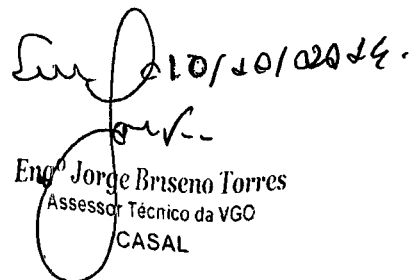 Em 10/10/2014.
Engº Jorge Briseno Torres
Assessor Técnico da VGO
CASAL